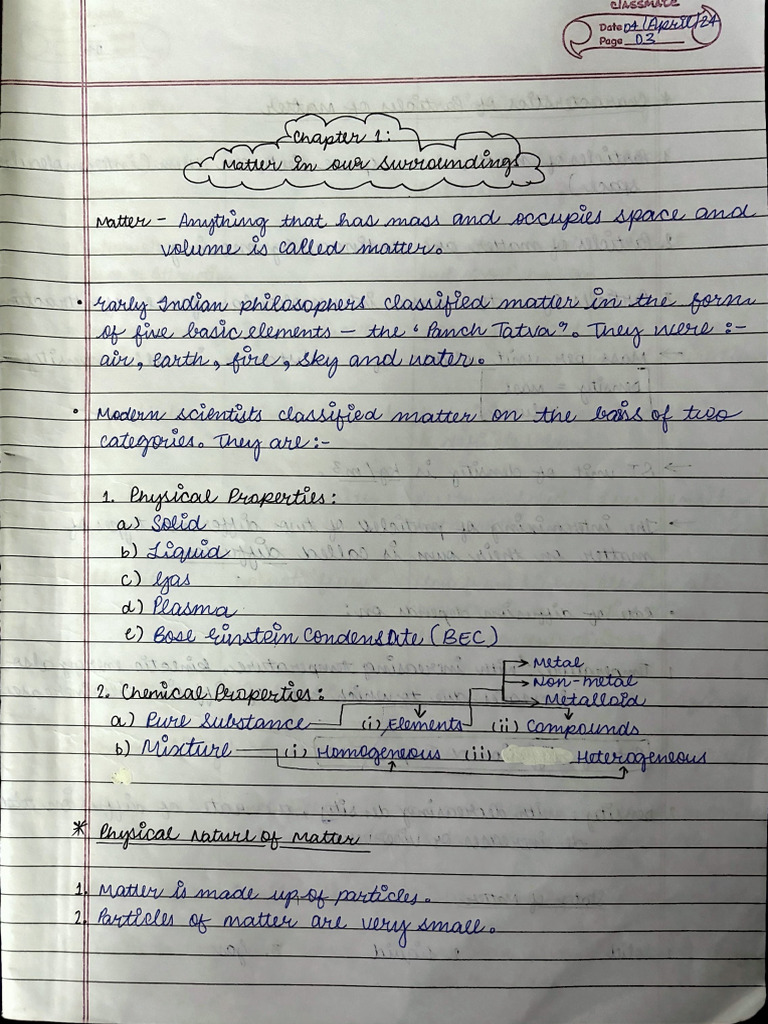 classmate
Date 04/April/24
Page 03
Chapter 1:
Matter in our surroundings
Matter - Anything that has mass and occupies space and
volume is called matter.
• Early Indian philosophers classified matter in the form
of five basic elements - the "Panch Tatva". They were :-
air, earth, fire, sky and water.
• Modern scientists classified matter on the basis of two
categories. They are :-
1. Physical Properties:
a) Solid
b) Liquid
c) Gas
d) Plasma
e) Bose Einstein Condensate (BEC)
→ Metal
→ Non-metal
2. Chemical Properties: → Metalloid
a) Pure Substance (i) Elements (ii) Compounds
b) Mixture (i) Homogeneous (ii) Heterogeneous
* Physical Nature of Matter
1. Matter is made up of particles.
2. Particles of matter are very small.